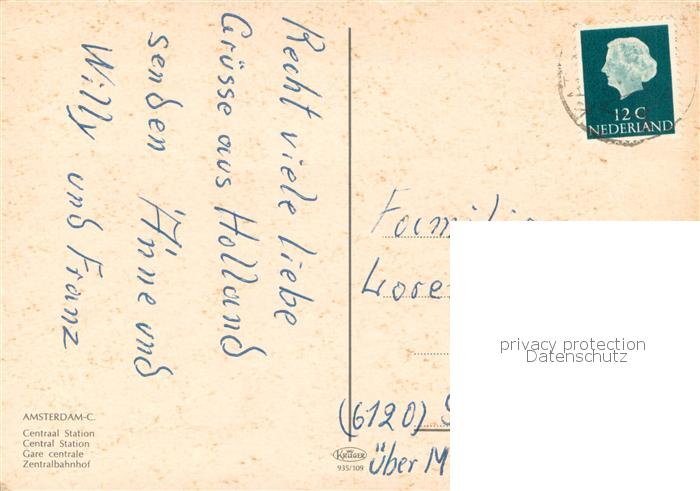 Recht viele liebe
Grüsse aus Holland
senden Änne und
Willy und Franz
12 C
NEDERLAND
Familie
(6120)
über M
privacy protection
Datenschutz
AMSTERDAM-C.
Centraal Station
Central Station
Gare centrale
Zentralbahnhof
KRÜGER
935/109